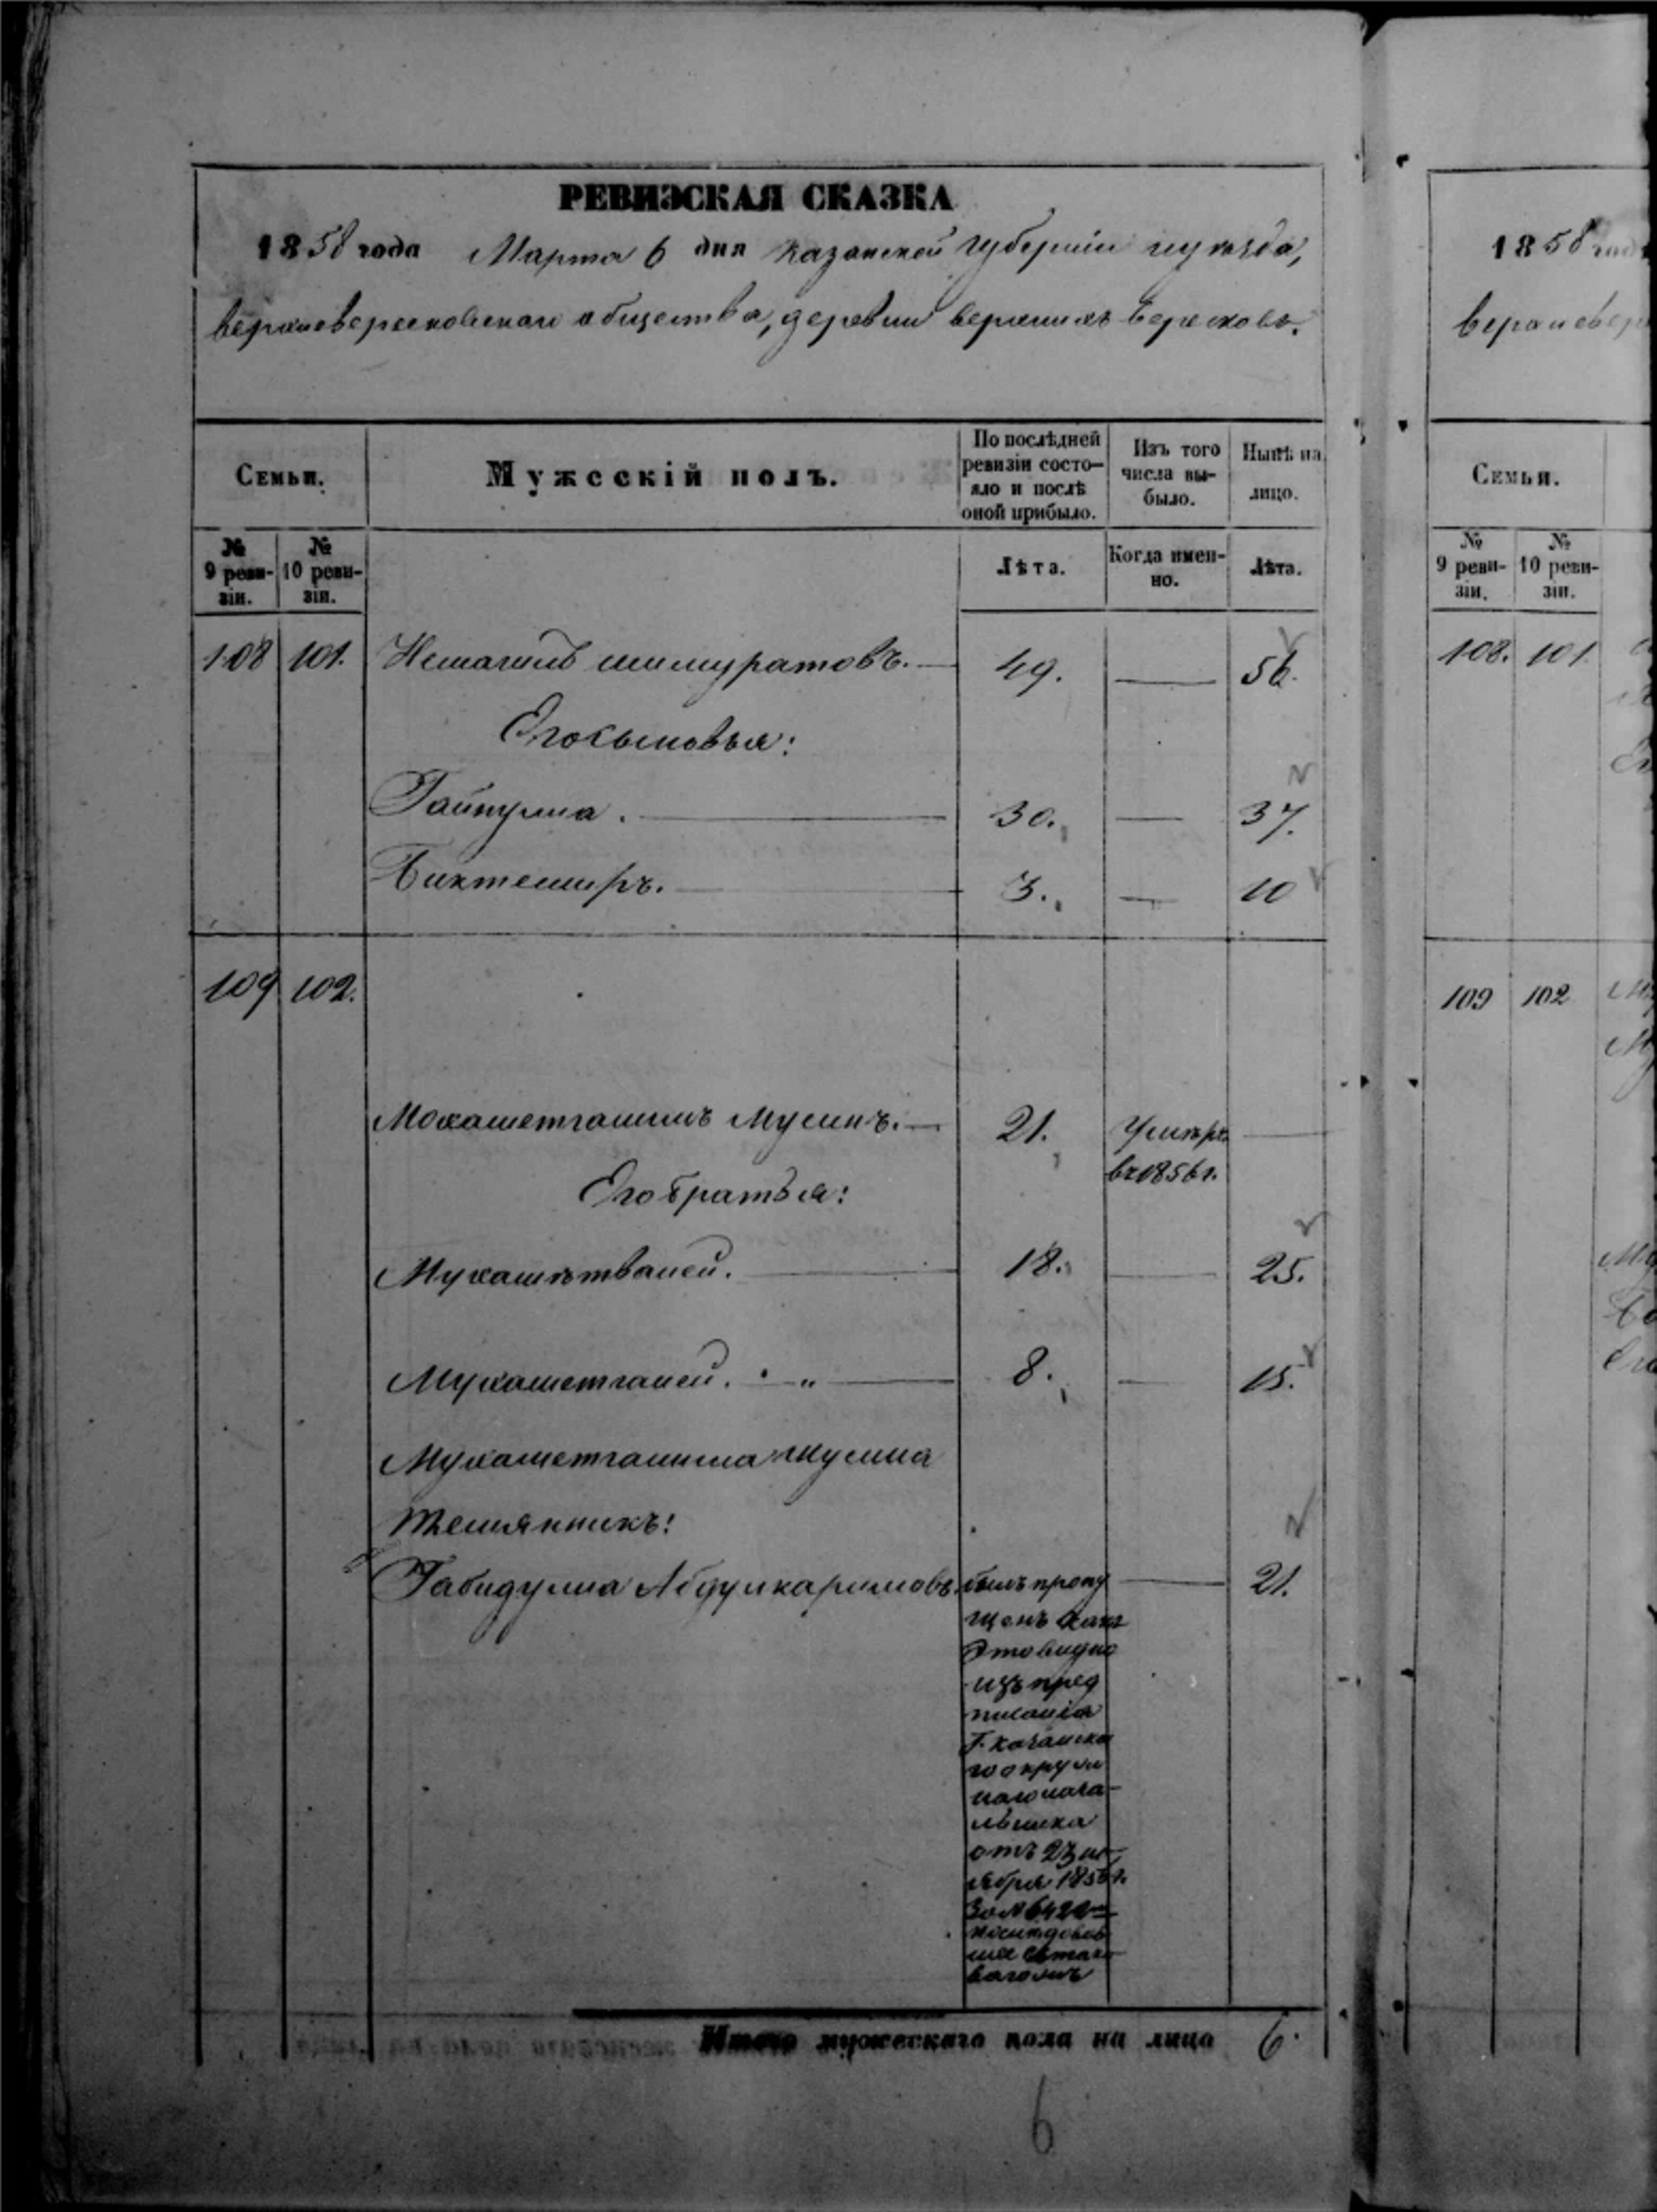 РЕВИЗСКАЯ СКАЗКА
1858 года Марта 6 дня Казанской Губерніи и уѣзда,
Верхневересковскаго общества, деревни верхнихъ Вересковъ.
Семьи.
Мужескій полъ.
По послѣдней ревизіи состо-
яло и послѣ
оной прибыло.
Изъ того
числа вы-
было.
Нынѣ на
лицо.
№
9 реви-
зіи.
№
10 реви-
зіи.
Лѣта.
Когда имен-
но.
Лѣта.
108 101. шимуратовъ. 49. — 56.
Его Сыновья:
30. — 37.
Биктемиръ. 3. — 10
109 102.
Мохаметгалимъ Мусинъ. 21. Умѣръ —
въ 1856 г.
Его братья:
Мухамѣтвалей. 18. — 25.
Мухаметгалей. „ 8. — 15.
Мухаметгалима Мусина
племянникъ:
Габидулла Абдулкаримовъ. былъ пропу — 21.
щенъ какъ
Это видно
изъ пред
писанія
Г. Казанска
го окруж
наго нача-
льника
отъ 23 но
ября 185
За №
послѣдовав
ваго
Итого мужескаго пола на лицо 6.
6
1858 года
Верхневер
Семьи.
№
9 реви-
зіи.
№
10 реви-
зіи.
108. 101.
109 102